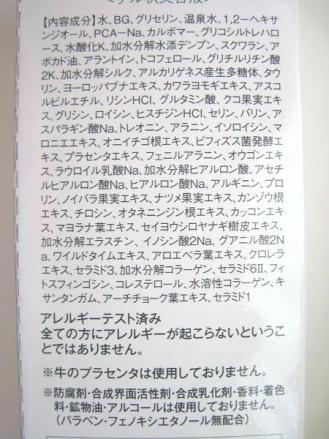 【内容成分】水、BG、グリセリン、温泉水、1,2-ヘキサ
ンジオール、PCA-Na、カルボマー、グリコシルトレハロ
ース、水酸化K、加水分解水添デンプン、スクワラン、ア
ボカド油、アラントイン、トコフェロール、グリチルリチン酸
2K、加水分解シルク、アルカリゲネス産生多糖体、タウ
リン、ヨーロッパブナエキス、カワラヨモギエキス、アスコ
ルビルエチル、リシンHCl、グルタミン酸、クコ果実エキ
ス、グリシン、ロイシン、ヒスチジンHCl、セリン、バリン、ア
スパラギン酸Na、トレオニン、アラニン、イソロイシン、マ
ロニエエキス、オニイチゴ根エキス、ビフィズス菌発酵エ
キス、プラセンタエキス、フェニルアラニン、オウゴンエキ
ス、ラウロイル乳酸Na、加水分解ヒアルロン酸、アセチ
ルヒアルロン酸Na、ヒアルロン酸Na、アルギニン、プロ
リン、ノイバラ果実エキス、ナツメ果実エキス、カンゾウ根
エキス、チロシン、オタネニンジン根エキス、カッコンエキ
ス、マヨラナ葉エキス、セイヨウシロヤナギ樹皮エキス、
加水分解エラスチン、イノシン酸2Na、グアニル酸2N
a、ワイルドタイムエキス、アロエベラ葉エキス、クロレラ
エキス、セラミド3、加水分解コラーゲン、セラミド6Ⅱ、フィ
トスフィンゴシン、コレステロール、水溶性コラーゲン、キ
サンタンガム、アーチチョーク葉エキス、セラミド1
アレルギーテスト済み
全ての方にアレルギーが起こらないというこ
とではありません。
※牛のプラセンタは使用しておりません。
※防腐剤・合成界面活性剤・合成乳化剤・香料・着色
料・鉱物油・アルコールは使用しておりません。
（パラベン・フェノキシエタノール無配合）